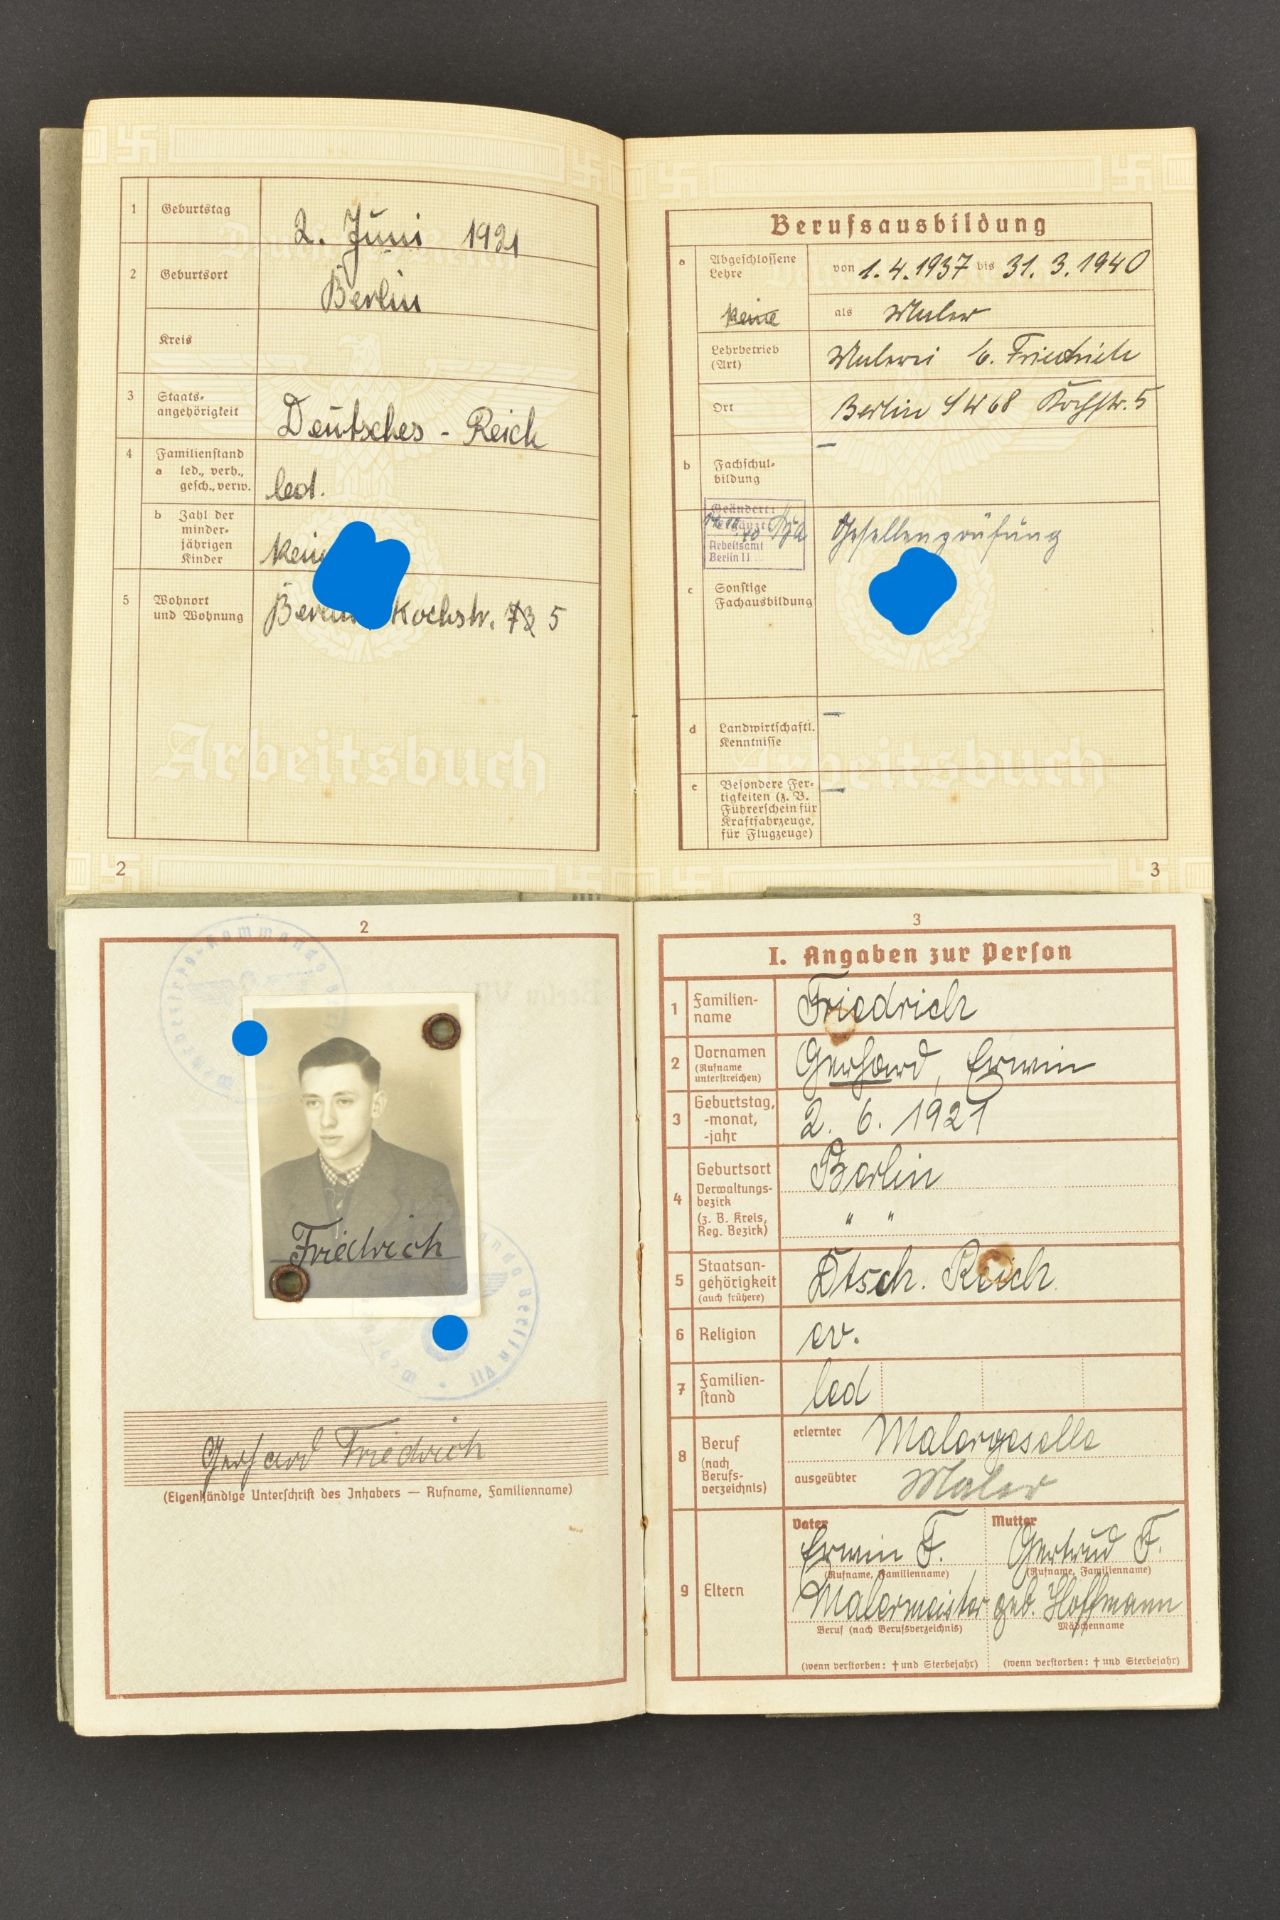 1 Geburtstag 2. Juni 1921
2 Geburtsort Berlin
Kreis
3 Staats-
angehörigkeit Deutsches - Reich
4 Familienstand
a led., verh.,
gesch., verw. led.
b Zahl der
minder-
jährigen
Kinder
5 Wohnort
und Wohnung Kochstr. 5
Arbeitsbuch
2
Berufsausbildung
a Abgeschlossene
Lehre von 1.4.1937 bis 31.3.1940
keine als Maler
Lehrbetrieb
(Art) Malerei E. Friedrich
Ort Berlin SW 68 Kochstr. 5
b Fachschul-
bildung –
Geändert:
Arbeitsamt
Berlin II
Gesellenprüfung
c Sonstige
Fachausbildung
d Landwirtschaftl.
Kenntnisse –
e Besondere Fer-
tigkeiten (z. B.
Führerschein für
Kraftfahrzeuge,
für Flugzeuge) –
Arbeitsbuch
3
2
Wehrbezirks-Kommando Berlin VII
Friedrich
Gerhard Friedrich
(Eigenhändige Unterschrift des Inhabers — Rufname, Familienname)
3
I. Angaben zur Person
1 Familien-
name Friedrich
2 Vornamen
(Rufname
unterstreichen) Gerhard, Erwin
3 Geburtstag,
-monat,
-jahr 2. 6. 1921
4 Geburtsort Berlin
Verwaltungs-
bezirk
(z. B. Kreis,
Reg. Bezirk) " "
5 Staatsan-
gehörigkeit
(auch frühere) Dtsch. Reich
6 Religion ev.
7 Familien-
stand led
8 Beruf
(nach
Berufs-
verzeichnis)
erlernter Malergeselle
ausgeübter Maler
9 Eltern
Vater Mutter
Erwin F. Gertrud F.
(Rufname, Familienname) (Rufname, Familienname)
Malermeister geb. Hoffmann
Beruf (nach Berufsverzeichnis) Mädchenname
(wenn verstorben: † und Sterbejahr) (wenn verstorben: † und Sterbejahr)